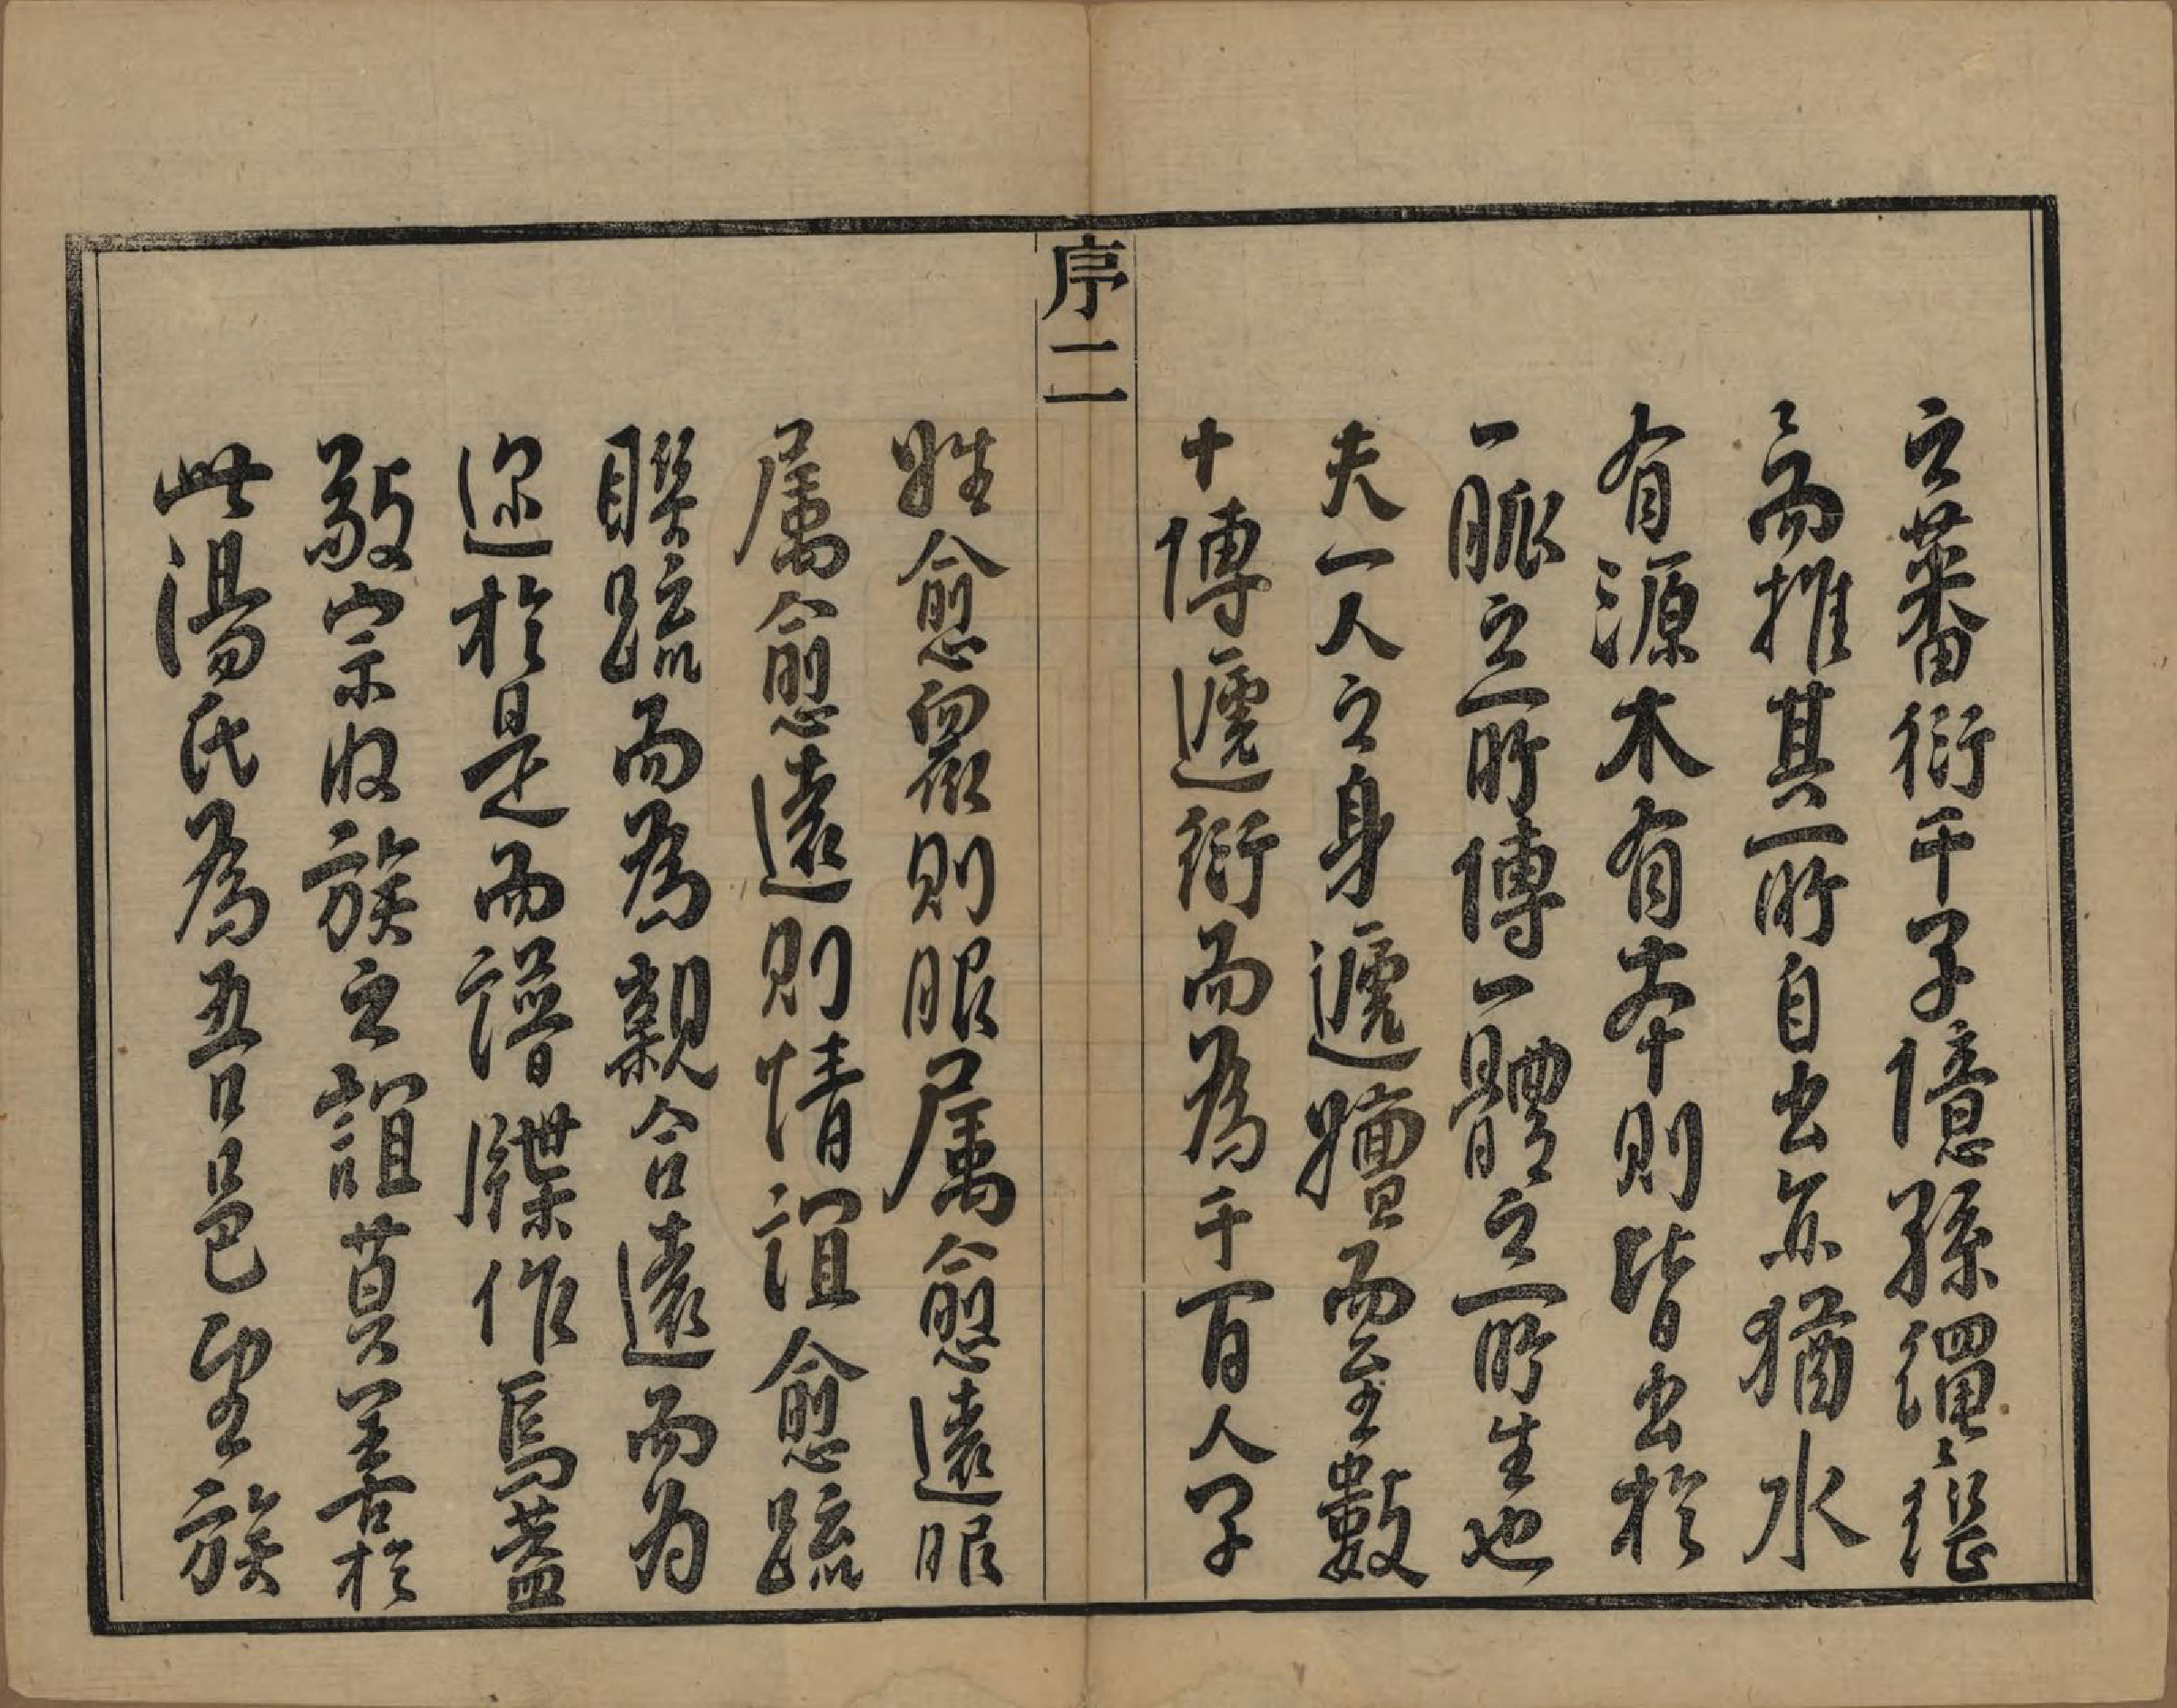 之蕃衍千子億孫繩〻繼
〻而推其所自出亦猶水
有源木有本則皆出於
一脈之所傳一體之所生也
夫一人之身遞嬗而至數
十傳遞衍而為千百人子
序二
姓愈眾則服屬愈遠服
屬愈遠則情誼愈疏
聯疏而為親合遠而为
迩於是而譜牒作焉蓋
敬宗收族之誼莫善於
此湯氏為吾邑望族